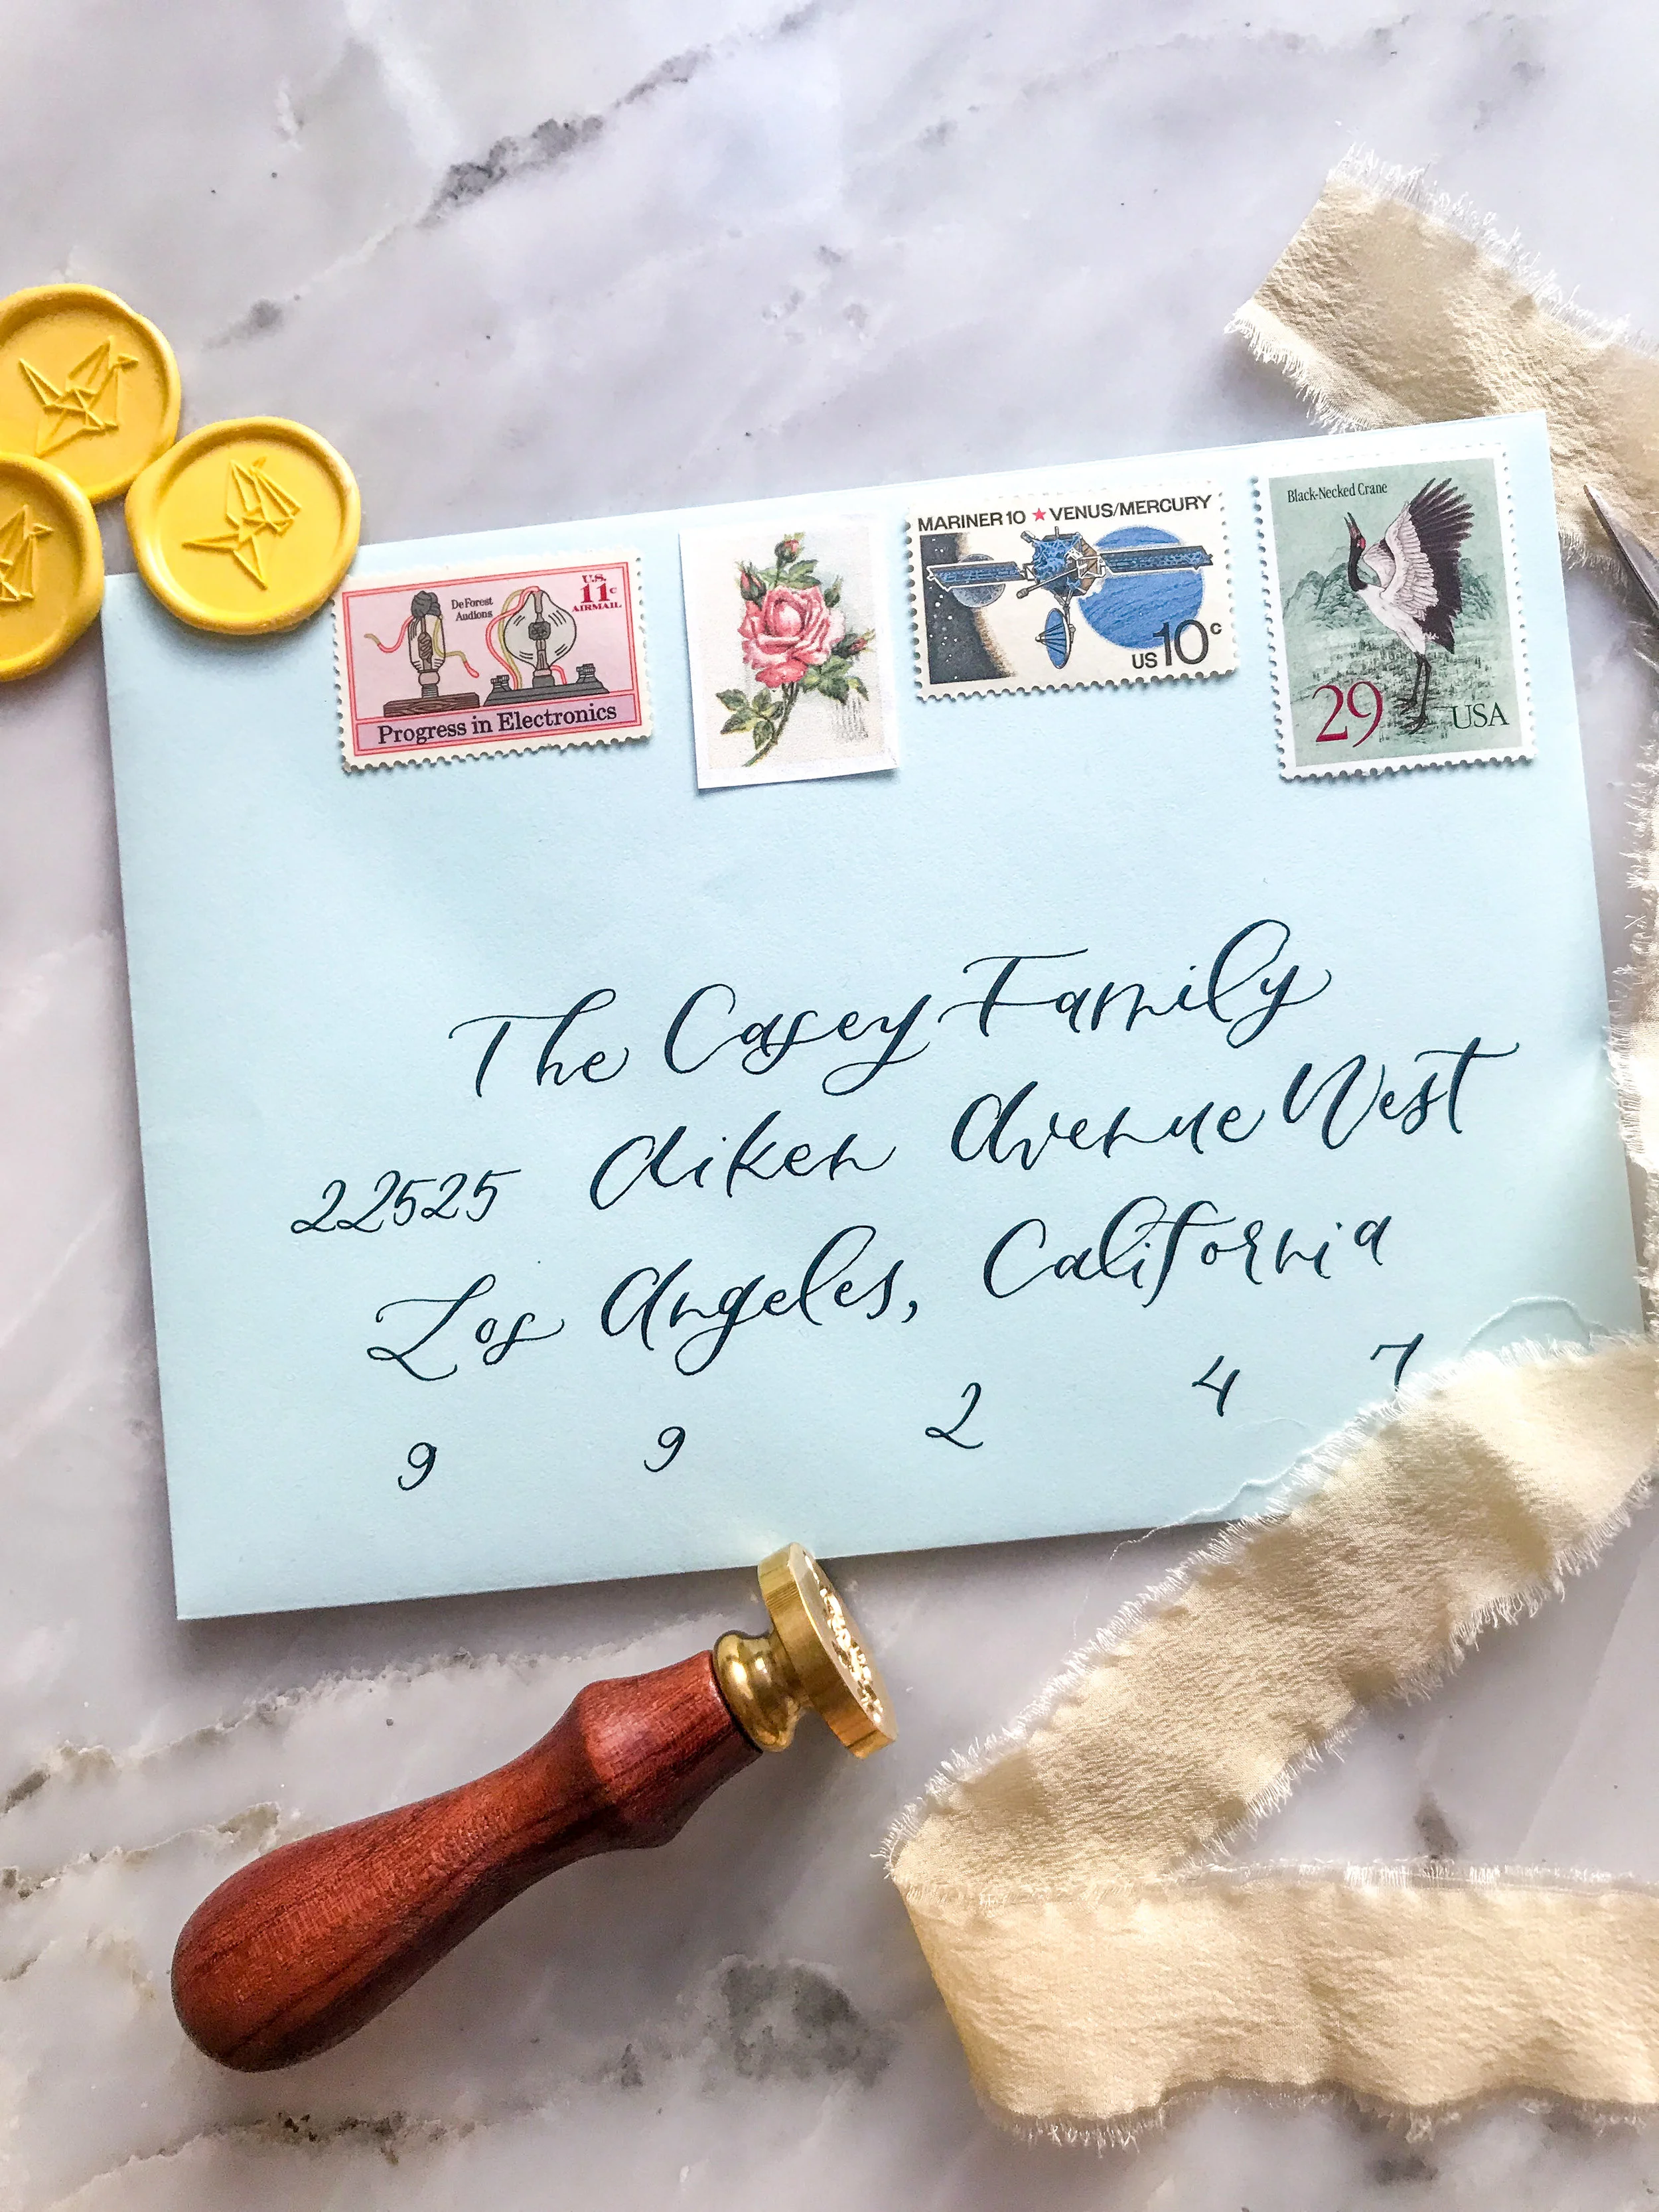 De Forest
Audions
U.S.
11c
AIRMAIL
Progress in Electronics
MARINER 10 ★ VENUS/MERCURY
US 10c
Black-Necked Crane
29 USA
The Casey Family
22525 Aiken Avenue West
Los Angeles, California
9 9 2 4 7